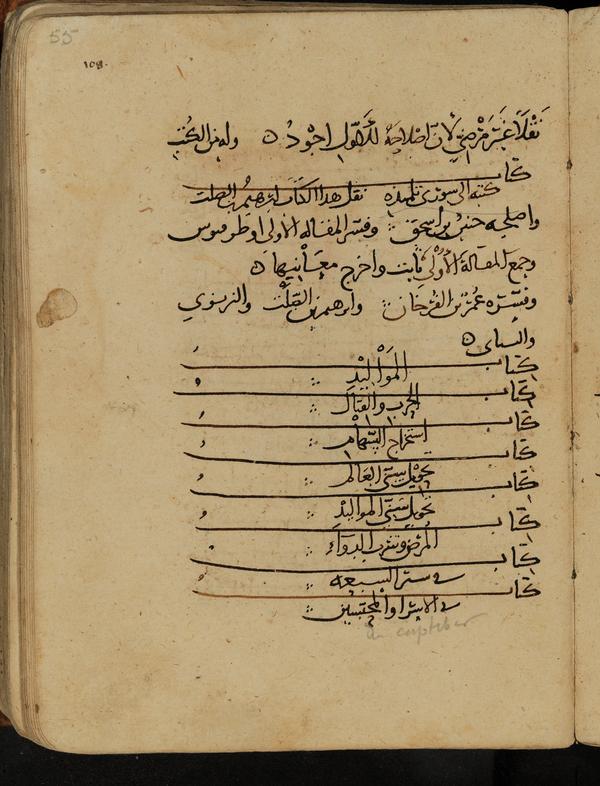 55
108.
نَقْلًا غَيْرَ مَرْضِيّ لأنّ اصْلاحَهُ للنَّقْلِ الاوّل اجْوَدُ ه وله من الكُتُب
كتاب
كتبه الى سورى تلميذه نقل هذا الكتاب ابرهيم بن الصلت
واصلحه حنين بن اسحق وفسّر المقالة الأولى اوطوقيوس
وجمع المقالة الأُوْلَى ثابت واخرج معَانيها ه
وفسّره عمر بن الفرّخان وابرهيم بن الصَّلْت والنريزي
والبتاني ه
كتاب المَوَالِيْد
كتاب الحرب والقتَال
كتاب استخراج السّهام
كتاب تحويل سنى العالم
كتاب تحويل سنى المواليد
كتاب المرض وشرب الدواء
كتاب في سير السبعة
كتاب في الاسرا والمحبّسين